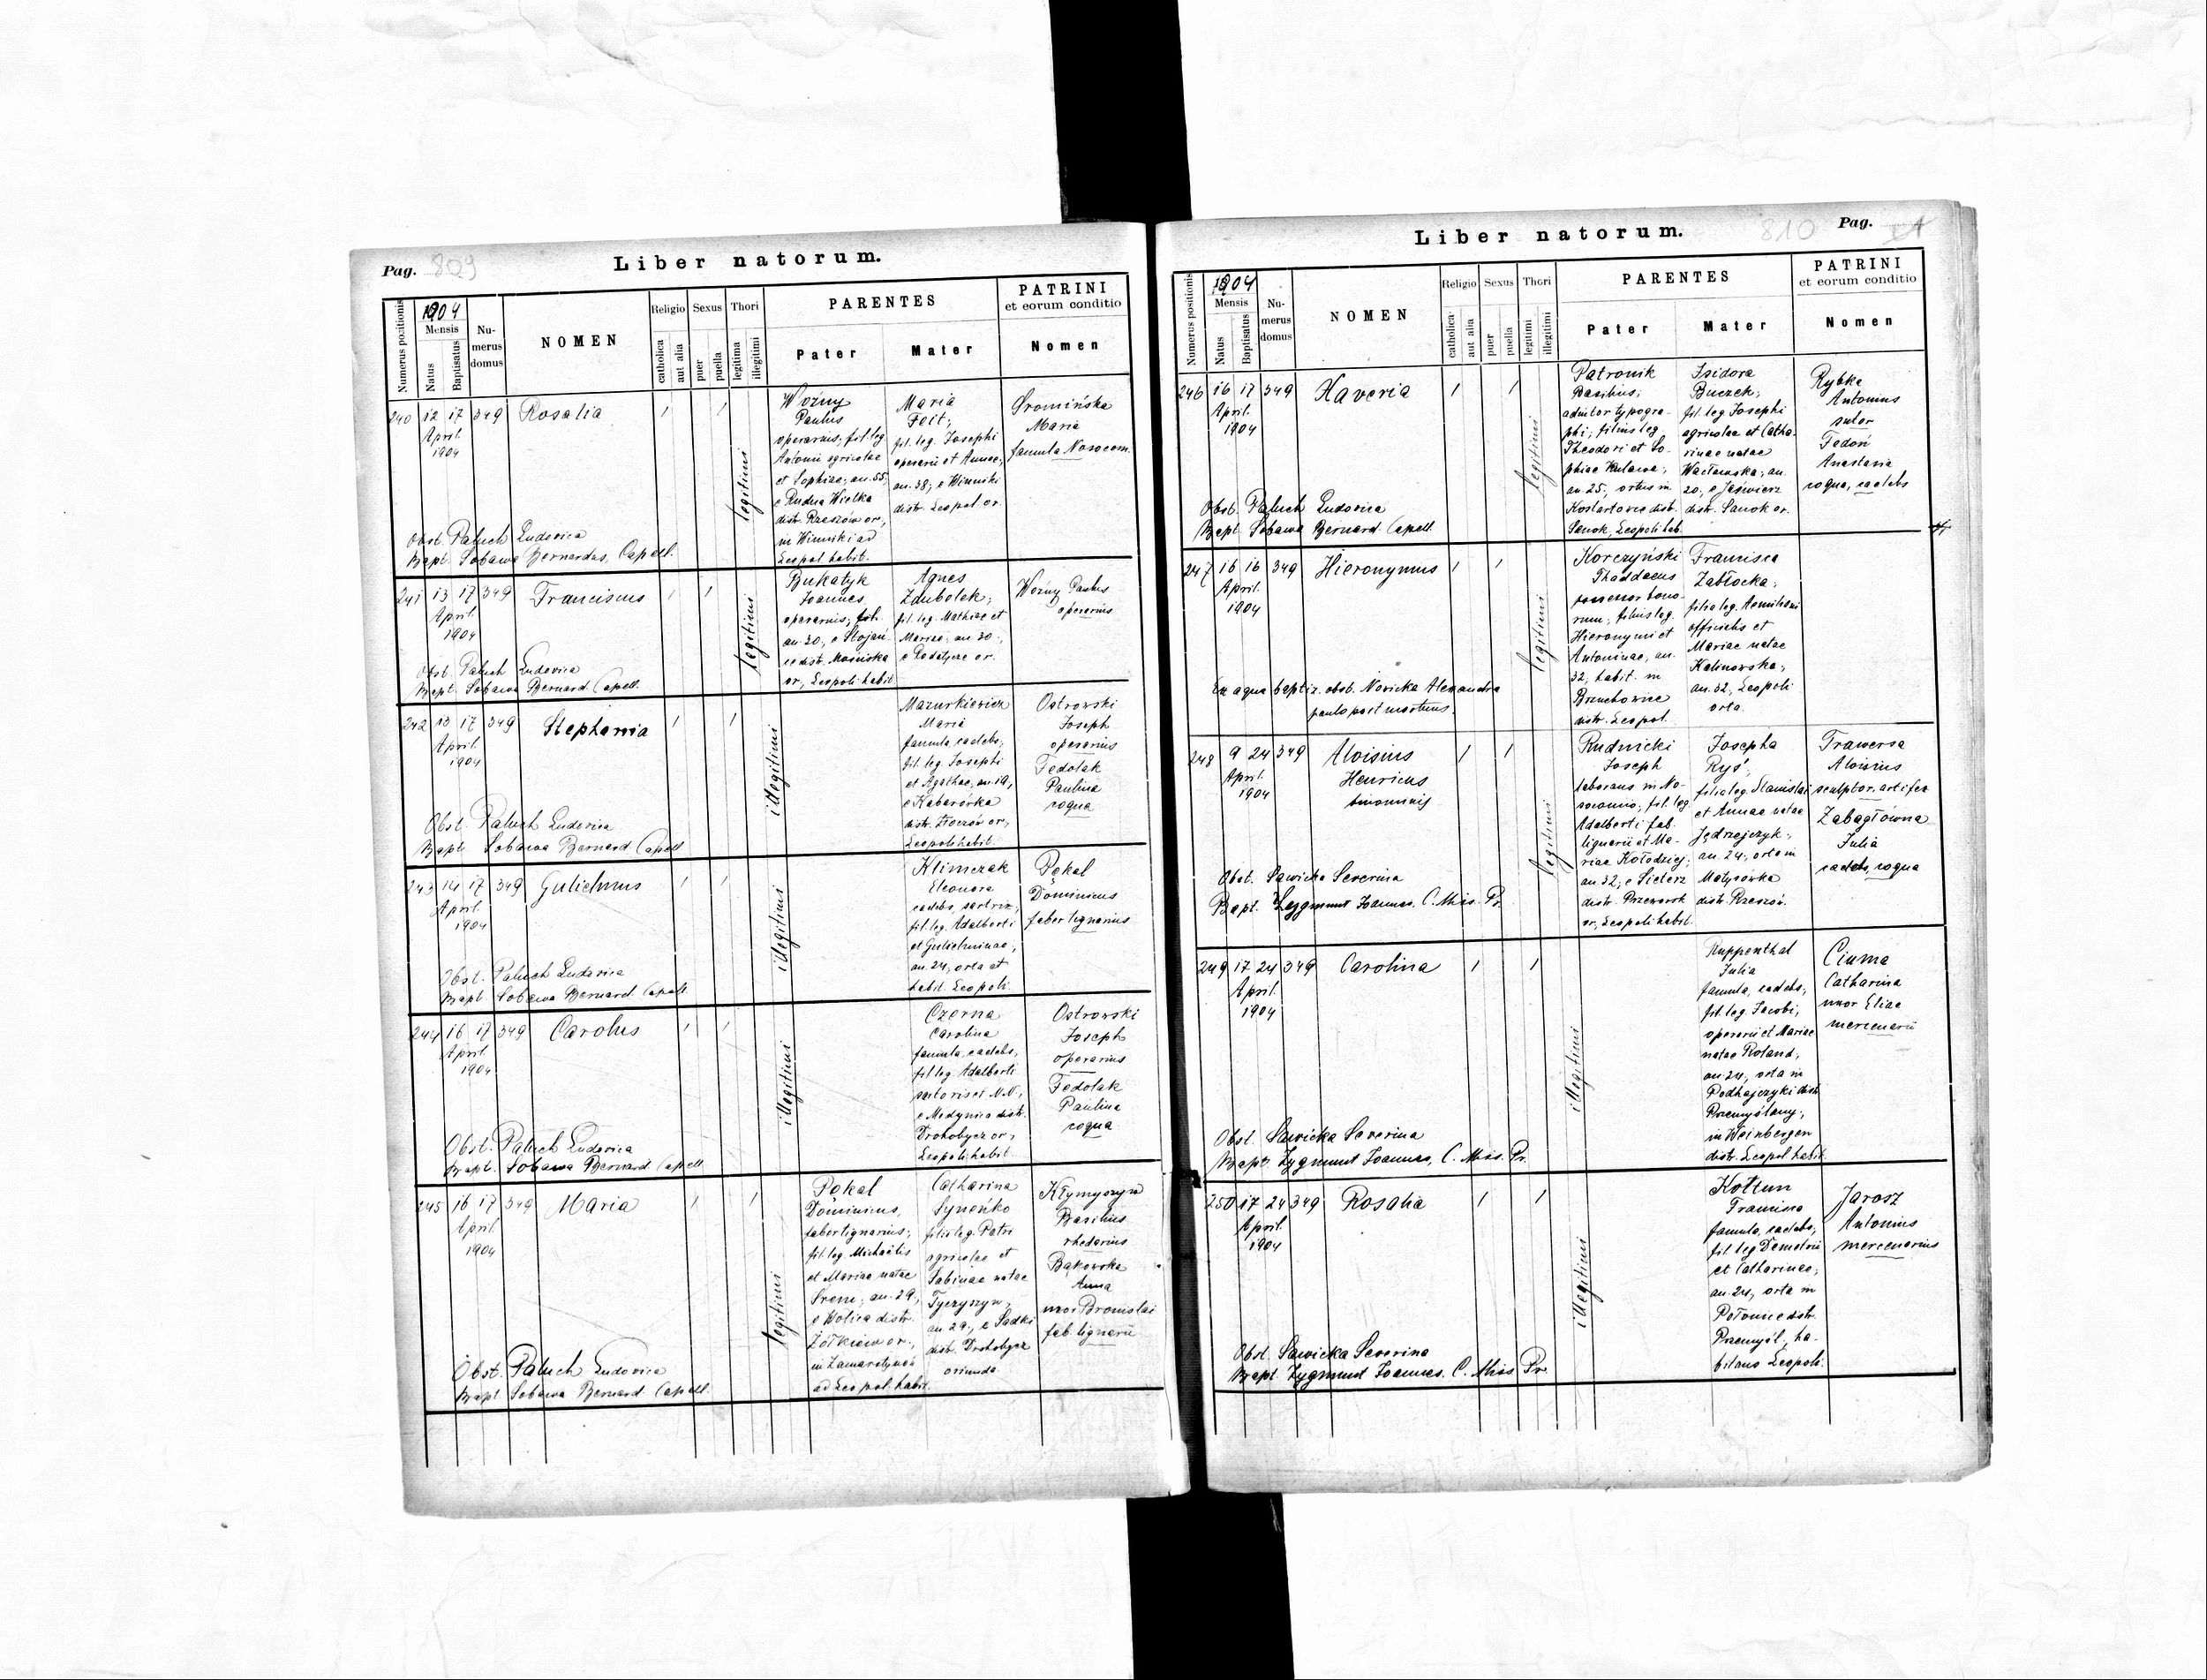 Pag. 809
Liber natorum.
Numerus positionis
1904
Mensis
Natus
Baptisatus
Nu-
merus
domus
NOMEN
Religio
catholica
aut alia
Sexus
puer
puella
Thori
legitima
illegitimi
PARENTES
Pater
Mater
PATRINI
et eorum conditio
Nomen
240 12 17 349 Rosalia
April.
1904
legitimi
Woźny
Paulus
operarius; fil. leg.
Antonii agricolae
et Sophiae; an. 55,
e Rudna Wielka
distr. Rzeszów or.,
in Winniki ad
Leopol. habit.
Maria
Feit;
fil. leg. Josephi
operarii et Annae;
an. 38; e Winniki
distr. Leopol or.
Maria
famula Nosocom.
Obst. Paluch Ludovica
Bapt. Sobawa Bernardus, Capell.
241 13 17 349 Franciscus
April.
1904
legitimi
Bukatyk
Joannes
operarius; fil.
an. 30, e Stojań-
ce distr. Mościska
or., Leopoli habit.
Agnes
Zdubolek;
fil. leg. Mathiae et
Mariae; an. 30;
Woźny Paulus
operarius
Obst. Paluch Ludovica
Bapt. Sobawa Bernard. Capell.
242 13 17 349 Stephania
April.
1904
illegitimi
Mazurkiewicz
Maria
famula, caelebs,
fil. leg. Josephi
et Agathae, an. 19,
e Kabarówka
distr. Złoczów or.,
Leopoli habit.
Ostrowski
Joseph
operarius
Fedolak
Paulina
coqua
Obst. Paluch Ludovica
Bapt. Sobawa Bernard. Capell.
243 14 17 349 Gulielmus
April.
1904
illegitimi
Klimczak
Eleonora
caelebs, sartrix,
fil. leg. Adalberti
et Gulielminae;
an. 24, orta et
habit. Leopoli.
Pękal
Dominicus
faber lignarius
Obst. Paluch Ludovica
Bapt. Sobawa Bernard. Capell.
244 16 17 349 Carolus
April
1904
illegitimi
Czerna
Carolina
famula, caelebs,
fil. leg. Adalberti
sartoris et N.N.,
e Medynica distr.
Drohobycz or.,
Leopoli habit.
Ostrowski
Joseph
operarius
Fedolak
Paulina
coqua
Obst. Paluch Ludovica
Bapt. Sobawa Bernard. Capell.
245 16 17 349 Maria
April.
1904
legitimi
Pękal
Dominicus,
faber lignarius;
fil. leg. Michaëlis
et Mariae natae
an. 29,
e Wolica distr.
Żółkiew or.,
in Zamarstynów
ad Leopol. habit.
Catharina
Syneńko
filia leg. Petri
agricolae et
Sabinae natae
Tyczyszyn,
an 29, e Sadki
distr. Drohobycz
oriunda.
Kłymyszyn
Basilius
rhedarius
Bąkowska
Anna
uxor Bronislai
fab. lignarii
Obst. Paluch Ludovica
Bapt. Sobawa Bernard. Capell.
Liber natorum.
810 Pag.
Numerus positionis
1904
Mensis
Natus
Baptisatus
Nu-
merus
domus
NOMEN
Religio
catholica
aut alia
Sexus
puer
puella
Thori
legitimi
illegitimi
PARENTES
Pater
Mater
PATRINI
et eorum conditio
Nomen
246 16 17 349 Xaveria
April.
1904
legitimi
Patronik
Basilius;
aduitor typogra-
phi; filius leg.
Theodori et So-
phiae Kulawa;
an. 25, ortus in
Kostarowce distr.
Sanok, Leopoli hab.
Isidora
Buczek;
fil. leg. Josephi
agricolae et Catha-
rinae natae
Wacławska; an.
20, e Jaćmierz
distr. Sanok or.
Rybka
Antonius
sutor
Fedoń
Anastasia
coqua, caelebs
Obst. Paluch Ludovica
Bapt. Sobawa Bernard. Capell
247 16 16 349 Hieronymus
April.
1904
legitimi
Korczyński
Thaddaeus
possessor bono-
rum; filius leg.
Hieronymi et
Antoninae, an.
32, habit. in
Brzuchowice
distr. Leopol.
Francisca
Zabłocka;
filia leg. Aemiliani
officialis et
Mariae natae
Kalinowska;
an. 32, Leopoli
orta.
Ex aqua baptiz. obst. Nowicka Alexandra
paulo post mortuus.
248 9 24 349 Aloisius
April.
1904
Henricus
binominis
legitimi
Rudnicki
Joseph
laborans in No-
socomio; fil. leg.
Adalberti fab.
lignarii et Ma-
riae Kołodziej;
an. 32; e Sieterz
distr. Przeworsk
or., Leopoli habit.
Josepha
Ryś;
filia leg. Stanislai
et Annae natae
Jędrzejczyk;
an. 24, orta in
Matysówka
distr. Rzeszów.
Trawersa
Aloisius
sculptor, artifex
Zabagłówna
Julia
caelebs, coqua
Obst. Sawicka Severina
Bapt. Zygmunt Joannes, C. Miss. Pr.
249 17 24 349 Carolina
April.
1904
illegitimi
Ruppenthal
Julia
famula, caelebs,
fil. leg. Jacobi,
operarii et Mariae
natae Roland,
an. 24, orta in
Podhajczyki distr.
Przemyślany,
in Weinbergen
distr. Leopol. habit.
Ciuma
Catharina
uxor Eliae
mercenarii
Obst. Sawicka Severina
Bapt. Zygmunt Joannes, C. Miss. Pr.
250 17 24 349 Rosalia
April.
1904
illegitimi
Kołtun
Francisca
famula, caelebs,
fil. leg. Demetrii
et Catharinae;
an. 24, orta in
distr.
Przemyśl, ha-
bitans Leopoli.
Jarosz
Antonius
mercenarius
Obst. Sawicka Severina
Bapt. Zygmunt Joannes, C. Miss. Pr.